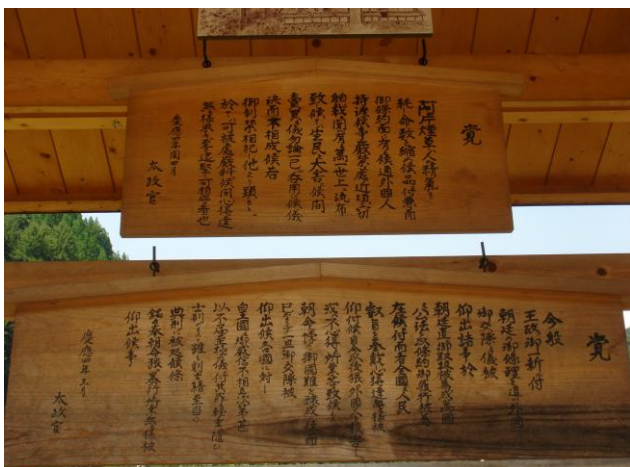 覚
阿片煙草ハ人ノ精気を
耗し命数を縮メ候品ニ付兼而
御條約面ニ有候通外國人
持渡候事厳禁之處近頃窃ニ
舶載聞有之萬一世上ニ流布
致候ハ生民之大害ニ候間
賣買之儀勿論一己ニ呑用候儀
決而不相成候若
御制禁相犯し他ゟ顕るゝニ
於ハ可被處厳科候間心得違
無様末々ニ至迄堅可相守者也
慶應四年閏四月
太政官
覚
今般
王政御一新ニ付
朝廷之御條理を追ひ外國
御交際之儀被
仰出諸事於
朝廷直ニ御取扱被為成萬國之
公法を以條約御履行被為
在候付而者全國之人民
叡旨を奉戴し心得違無之様被
仰付候自今以後猥ニ外國人を殺害し
或ハ不心得之所業等致候
朝命ニ悖り御國難を醸成し候
一旦御交際被
仰出候各國ニ對し
皇國之御威信も不相立次第甚
以不届至極之儀ニ付其罪之軽重ニ随ひ
士列のものと雖も削士籍至當之
典刑ニ被處候條
銘々奉朝命猥りニ暴行之所業無之様被
仰出候事
慶應四年三月
太政官